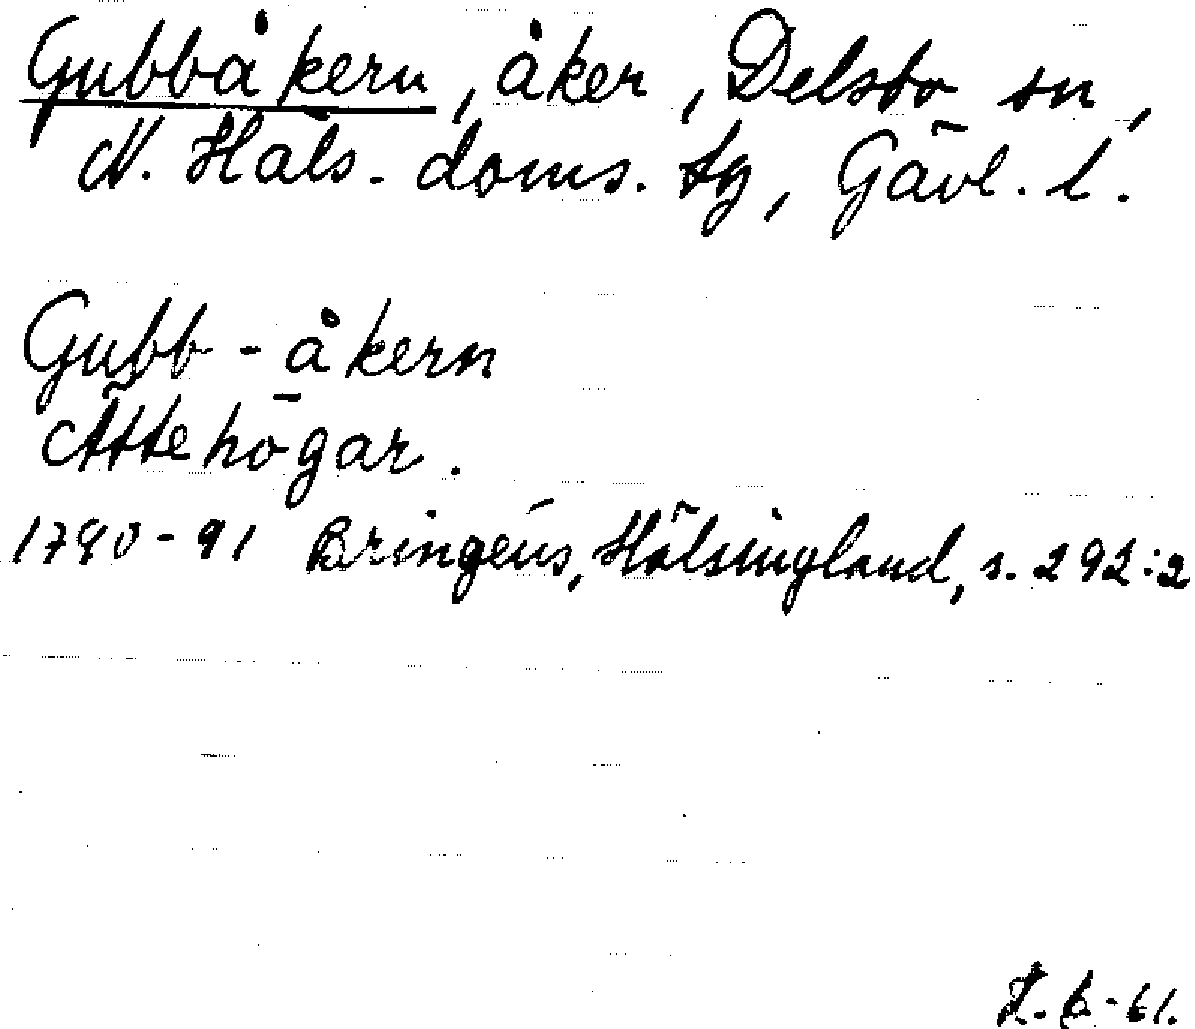 Gubbåkern, åker, Delsbo sn,
N. Häls. doms. tg, Gävl. l.
Gubb-åkern
Ättehögar.
1790-91 Bringéus, Hälsingland, s. 292:2